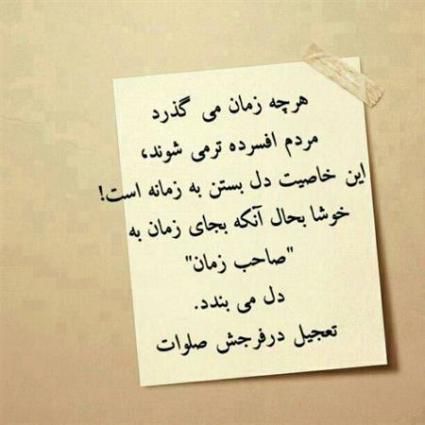 هرچه زمان می گذرد
مردم افسرده ترمی شوند،
این خاصیت دل بستن به زمانه است!
خوشا بحال آنکه بجای زمان به
"صاحب زمان"
دل می بندد.
تعجیل درفرجش صلوات